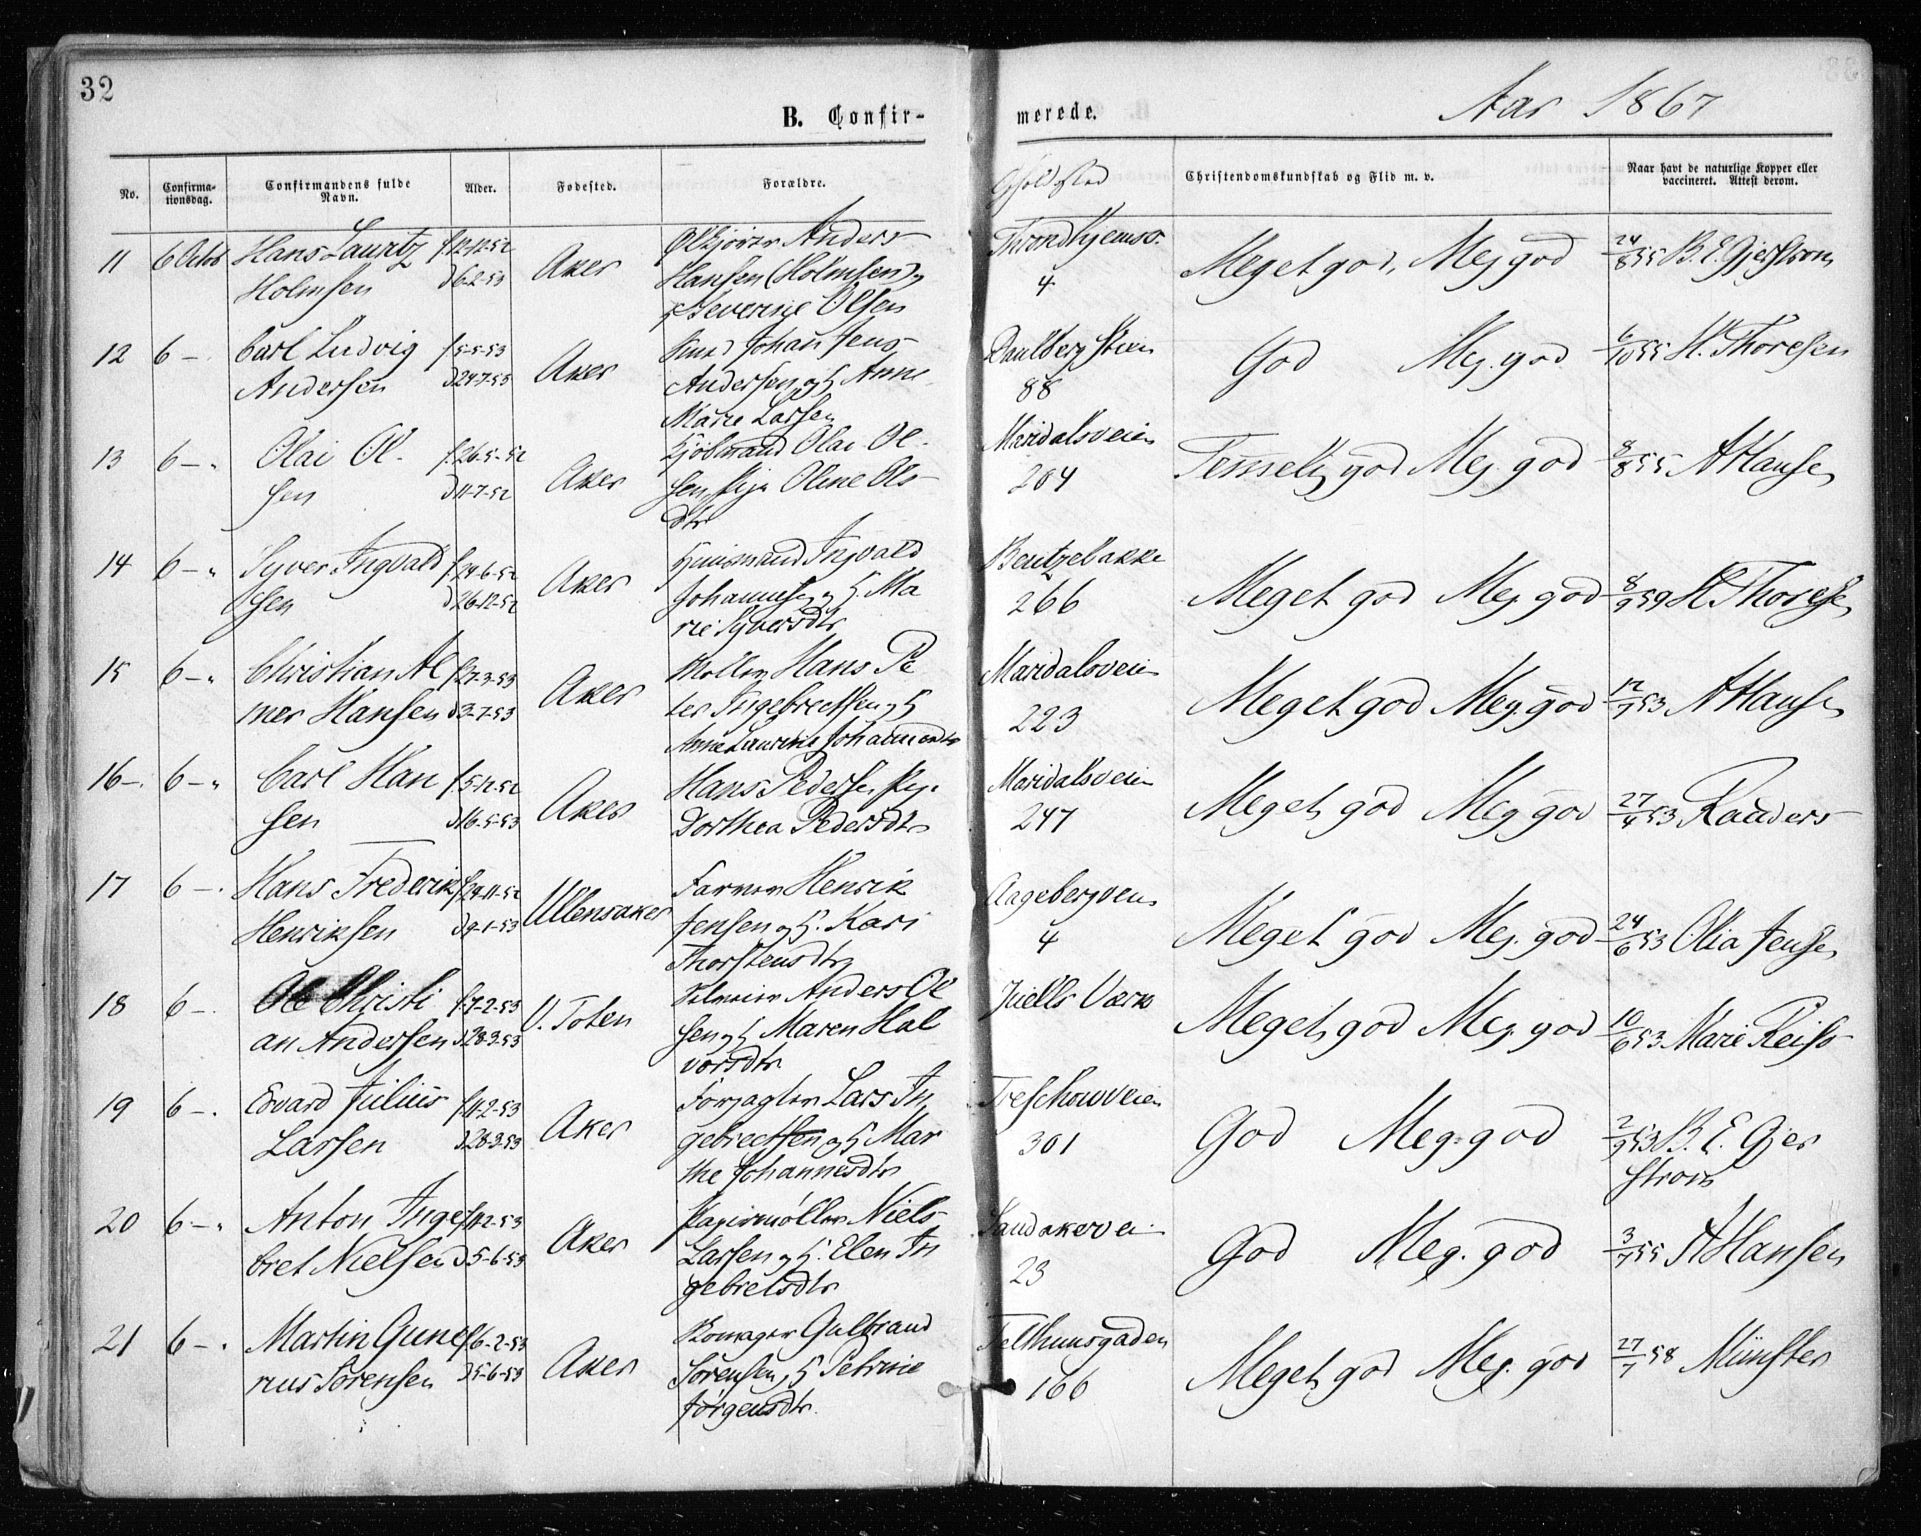 32
B. Confir-
merede.
Aar 1867
No.
Confirma-
tionsdag.
Confirmandens fulde
Navn.
Alder.
Fødested.
Forældre.
Opholdssted
Christendomskundskab og Flid m. v.
Naar havt de naturlige Kopper eller
vaccineret. Attest derom.
11 6 Octob Hans Lauritz f. 12-12-52 Aker Anders Throndhjemsv. Meget god, Meg god 24/8 55 B. E. Gjerstrom
Holmsen d 6-2-53 Hansen (Holmsen) og 4
Severine Olsen
12 6 – Carl Ludvig f 5-5-53 Aker Smed Johan Jens Meg. god 6/10 55 H. Thoresen
God
Andersen d 24-7-53 Andersen og H Anne 88
Marie Larsen
13 6 –„ Olai Ol- f. 26-5-52 Aker Olai Ol- Maridalsveien Temelig god Meg. god 8/8 55 A Hansen
sen d 11-7-52 sen, Pige Oline Ols- 204
dtr
14 6 –„ Syver Ingvald f 24-6-52 Aker Husmand Ingvald Bentzebakke Meget god Meg god 8/9 59 H Thoresen
sen d 26-12-52 Johannesen og H. Ma 266
rie Syversdtr
15 6 –„ Christian Al f 27-3-53 Aker Møller Hans Pe Maridalsveien Meget god Meg. god 17/9 53 A Hansen
mer Hansen d 3-7-53 ter Ingebrectsen og H 223
Anne Laurine Johannesdtr
16 –. 6 –„ Carl Han f. 5-12-52 Aker Hans Pedersen, Pige Maridalsveien Meget god Meg god 27/4 53 Randers
sen d 16-5-53 Dorthea Pedersdtr 247
17 6 –. Hans Frederik f 24-11-52 Ullensaker Farver Henrik Aagebergveien Meget god Meg. god 24/6 53 Olia Jensen
Henriksen d 9-1-53 Jensen og H. Kari 4
Thorstensdtr
18 6 –. Ole Christi f. 7-2-53 V. Toten Anders Ol Juells Værk Meget god Meg. god 10/6 53 Marie Reiss
an Andersen d 28-3-53 sen og H Maren Hal
vorsdtr.
19 6 –. Edvard Julius f 11-2-53 Aker Forpagter Lars In Treschowveien God Meg. god 2/9 53 B. E. Gjer
Larsen d 28-3-53 gebrectsen og H Mar 301 strom
the Johannesdtr
20 6 –„ Anton Inge f 11-2-53 Aker Papirmøller Niels Sandakervei God Meg. god 3/7 55 A Hansen
bret Nielsen d 5-6-53 Larsen og H. Elen In 23
gebretsdtr
21 6 –. Martin Gune f 6-2-53 Aker Gulbrand Telthuusgaden Meget god Meg. god 27/7 58 Münster
rius Sørensen d 5-6-53 Sørensen, H Petrine 166
Jørgensdtr.